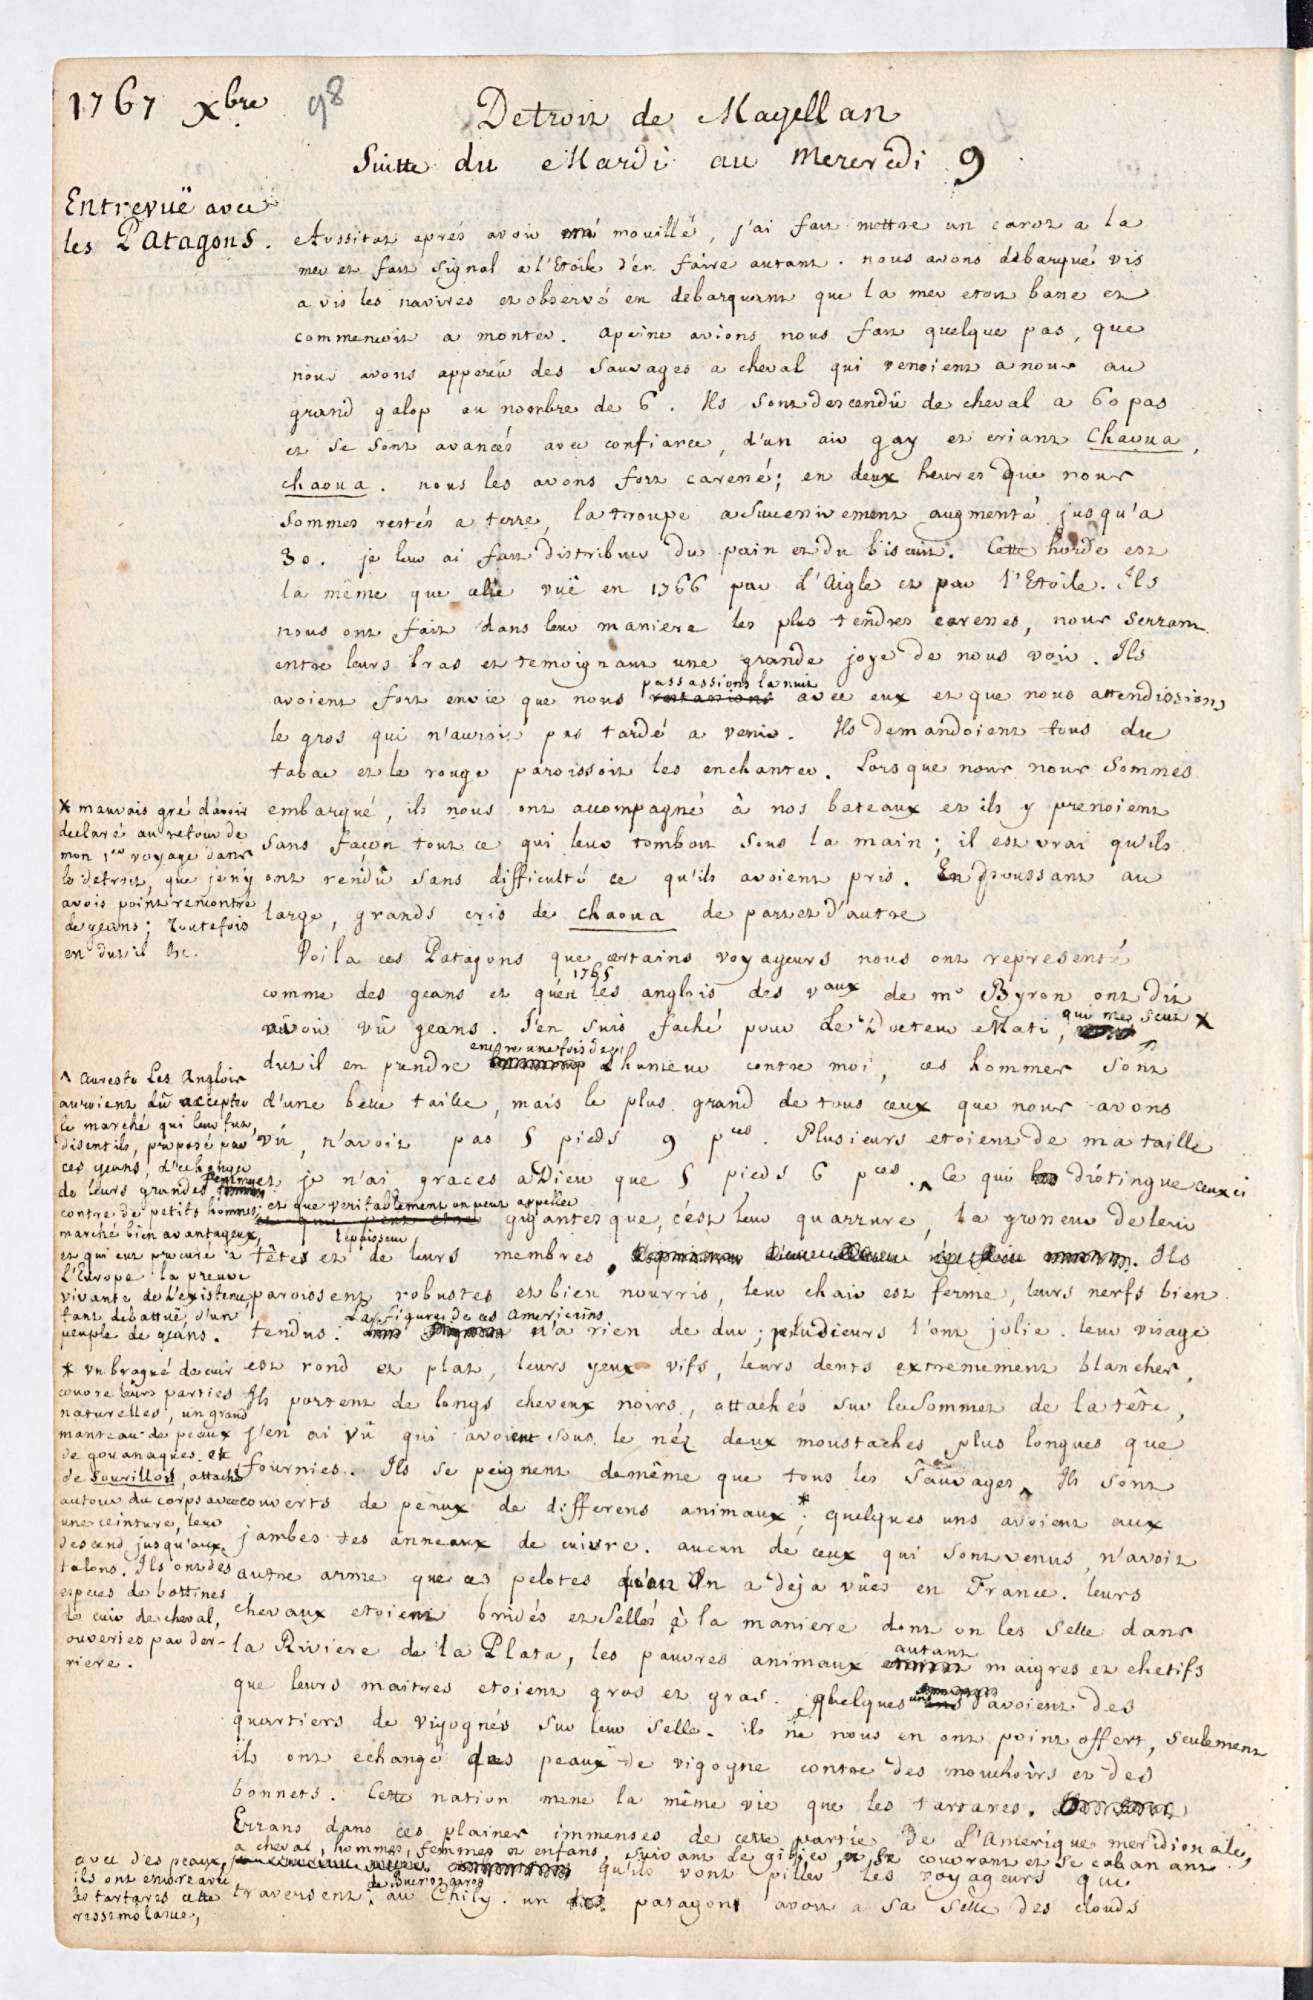 1767 Xbre 98
Detroit de Magellan
Suitte du Mardi au Mercredi 9
Entrevuë avec
les Patagons.
Aussitot aprés avoir mouillé, j'ai fait mettre un canot a la
mer et fait signal a l'Etoile d'en faire autant. nous avons débarqué vis
a vis les navires et observé en debarquant que la mer etoit basse et
commencoit a monter. apeine avions nous fait quelque pas, que
nous avons apperçû des Sauvages a cheval qui venoient a nous au
grand galop au nombre de 6. Ils sont descendû de cheval a 60 pas
et se sont avancés avec confiance, d'un air gay et criant Chaoua,
chaoua. nous les avons fort caressé; en deux heures que nous
sommes restés a terre, la troupe a successivement augmenté jusqu'a
30. je leur ai fait distribuer du pain et du biscuit. Cette horde est
la même que celle vuë en 1766 par l'Aigle et par l'Etoile. Ils
nous ont fait dans leur maniere les plus tendres caresses, nous serrant
entre leurs bras et temoignant une grande joye de nous voir. Ils
passassions la nuit
avoient fort envie que nous restassions avec eux et que nous attendissions
le gros qui n'auroit pas tardé a venir. Ils demandoient tous du
tabac et le rouge paroissoit les enchanter. Lorsque nous nous sommes
embarqué, ils nous ont accompagné à nos bateaux et ils y prenoient
sans façon tout ce qui leur tomboit sous la main; il est vrai qu'ils
ont rendû sans difficulté ce qu'ils avoient pris. En poussant au
large, grands cris de chaoua de part et d'autre
Voila ces Patagons que certains voyageurs nous ont representé
1765
comme des geans et qu'en les anglois des vaux de mr Byron ont dit
avoir vû geans. J'en suis faché pour le Docteur Mati, qui me scut X
encore une fois de l'
dut il en prendre humeur contre moi, ces hommes sont
d'une belle taille, mais le plus grand de tous ceux que nous avons
vû, n'avoit pas 5 pieds 9 pces. Plusieurs etoient de ma taille
et je n'ai graces a Dieu que 5 pieds 6 pces. ^ Ce qui distingue ceux ci
et que veritablement on peut appeller
gigantesque, c'est leur quarrure, la grosseur de leur
l'epaisseur
têtes et de leurs membres. Ils
paroissent robustes et bien nourris, leur chair est ferme, leurs nerfs bien
La figure de ces Americains
tendus. n'a rien de dur; plusieurs l'ont jolie. leur visage
est rond et plat, leurs yeux vifs, leurs dents extremement blanches,
Ils portent de longs cheveux noirs, attachés sur le Sommet de la tête,
j'en ai vû qui avoient sous le néz deux moustaches plus longues que
fournies. Ils se peignent de même que tous les Sauvages. Ils sont
couverts de peaux de differens animaux*; quelques uns avoient aux
jambes des anneaux de cuivre. aucun de ceux qui sont venus n'avoit
autre arme que ces pelotes qu'on a deja vûes en France. leurs
chevaux etoient bridés et sellés à la maniere dont on les selle dans
la Riviere de la Plata, les pauvres animaux autant maigres et chetifs
que leurs maitres etoient gros et gras. quelques uns avoient des
quartiers de vigognés sur leur selle. ils ne nous en ont point offert, seulement
ils ont echangé des peaux de vigogne contre des mouchoirs et des
bonnets. Cette nation mene la même vie que les tartares.
Errans dans ces plaines immenses de cette partie de l'Amerique meridionale,
a cheval, hommes, femmes et enfans, suivant le gibier, se couvrant et se cabanant
qu'ils vont piller les voyageurs qui
de Buenos ayres
traversent au Chily. un patagons avoit a sa selle des clouds
X mauvais gré d'avoir
declaré au retour de
mon 1er voyage dans
le detroit, que je n'y
avois point rencontré
de geans; Toutefois
en dut il &c.
^ Aureste Les Anglois
auroient dû accepter
le marché qui leur fut,
disent ils, proposé par
ces geans, d'echange
de leurs grandes femmes
contre de petits hommes;
marché bien avantageux,
et qui eut procuré a
l'Europe la preuve
vivante de l'existence
tant debattuë, d'un
peuple de geans.
* un bragué de cuir
couvre leurs parties
naturelles, un grand
manteau de peaux
de gouanaques et
de sourillos, attaché
autour du corps avec
une ceinture, leur
descend jusqu'aux
talons. Ils ont des
especes de bottines
de cuir de cheval,
ouvertes par der-
riere.
avec des peaux,
ils ont encore avec
les tartares cette
ressemblance,